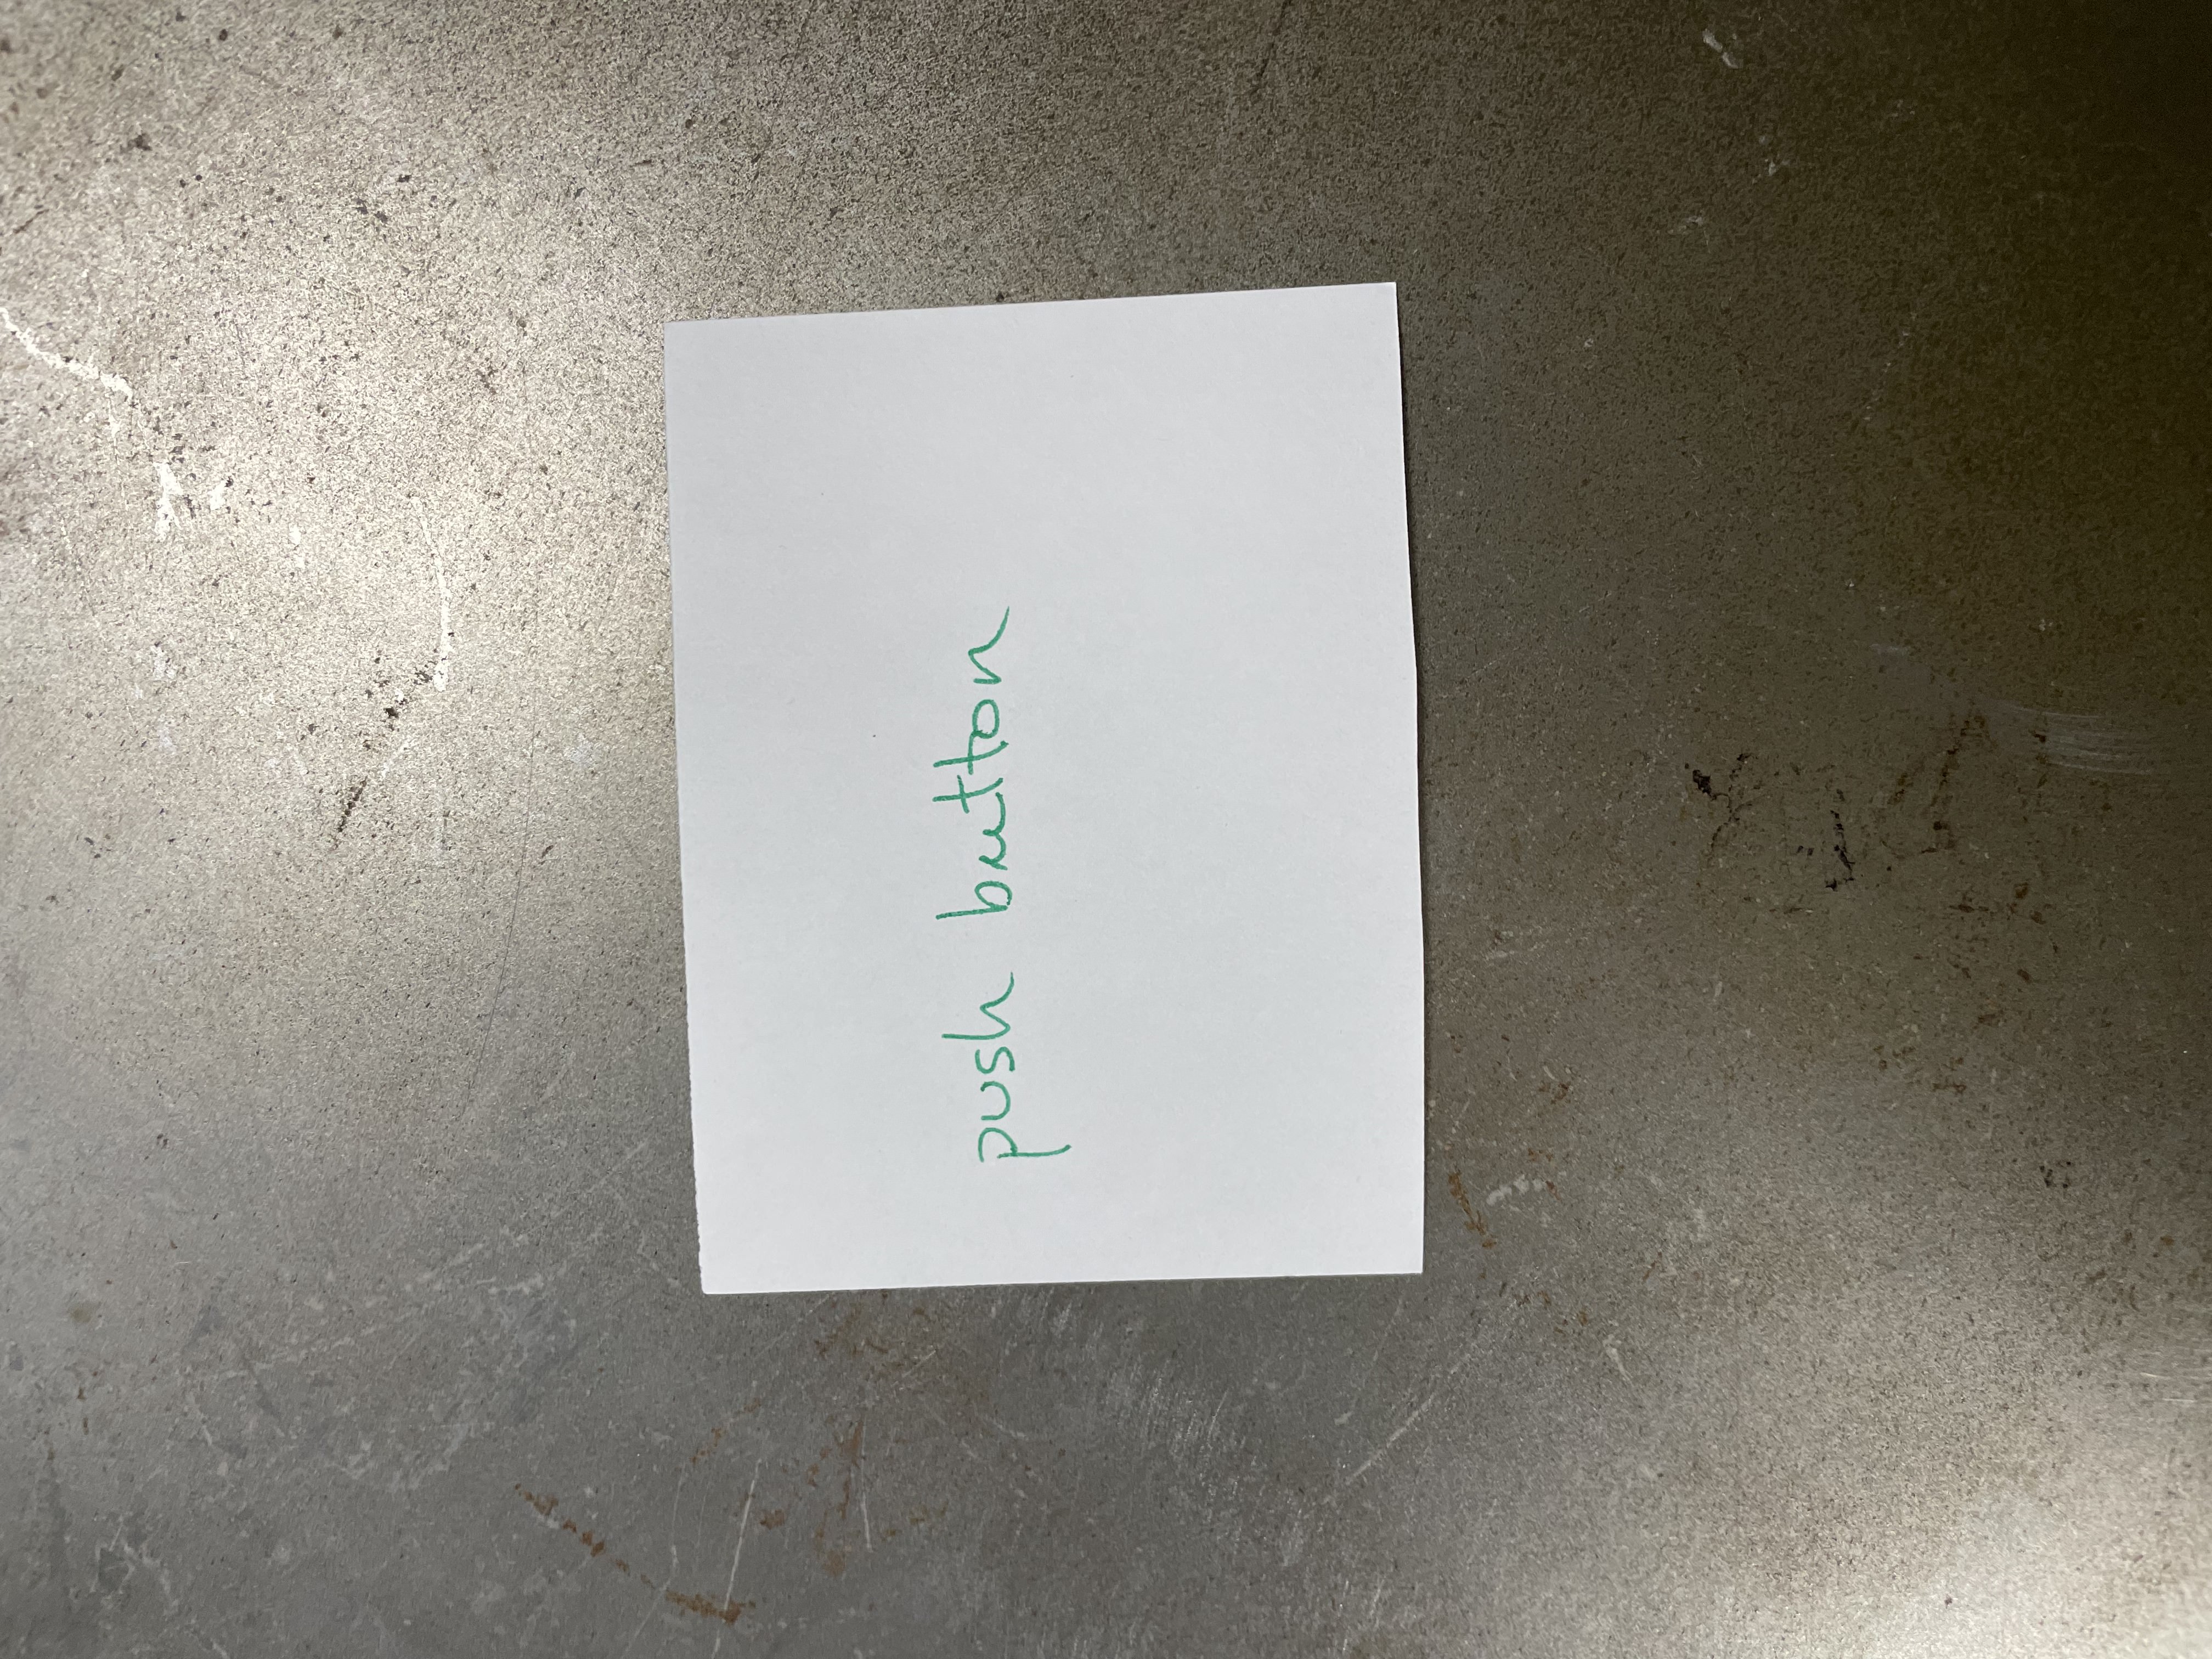 push button